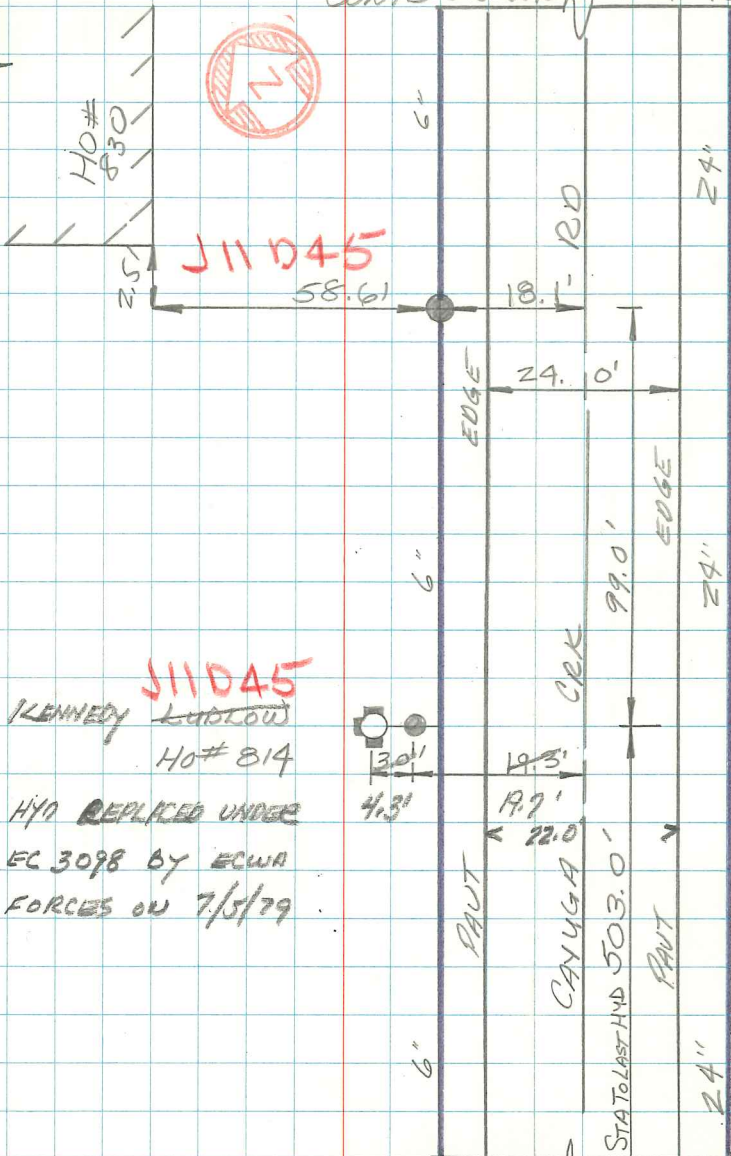 6"
N
HO#
830
24"
RD
J11D45
2.5'
58.61
18.1'
24.0'
EDGE
EDGE
6"
99.0'
24"
CRK
J11D45
KENNEDY LUDLOW
HO# 814
3.0'
19.3'
4.3'
19.7'
22.0'
HYD REPLACED UNDER
EC 3098 BY ECWA
FORCES ON 7/5/79
PAVT
CAYUGA
STA TO LAST HYD 503.0'
PAVT
6"
24"